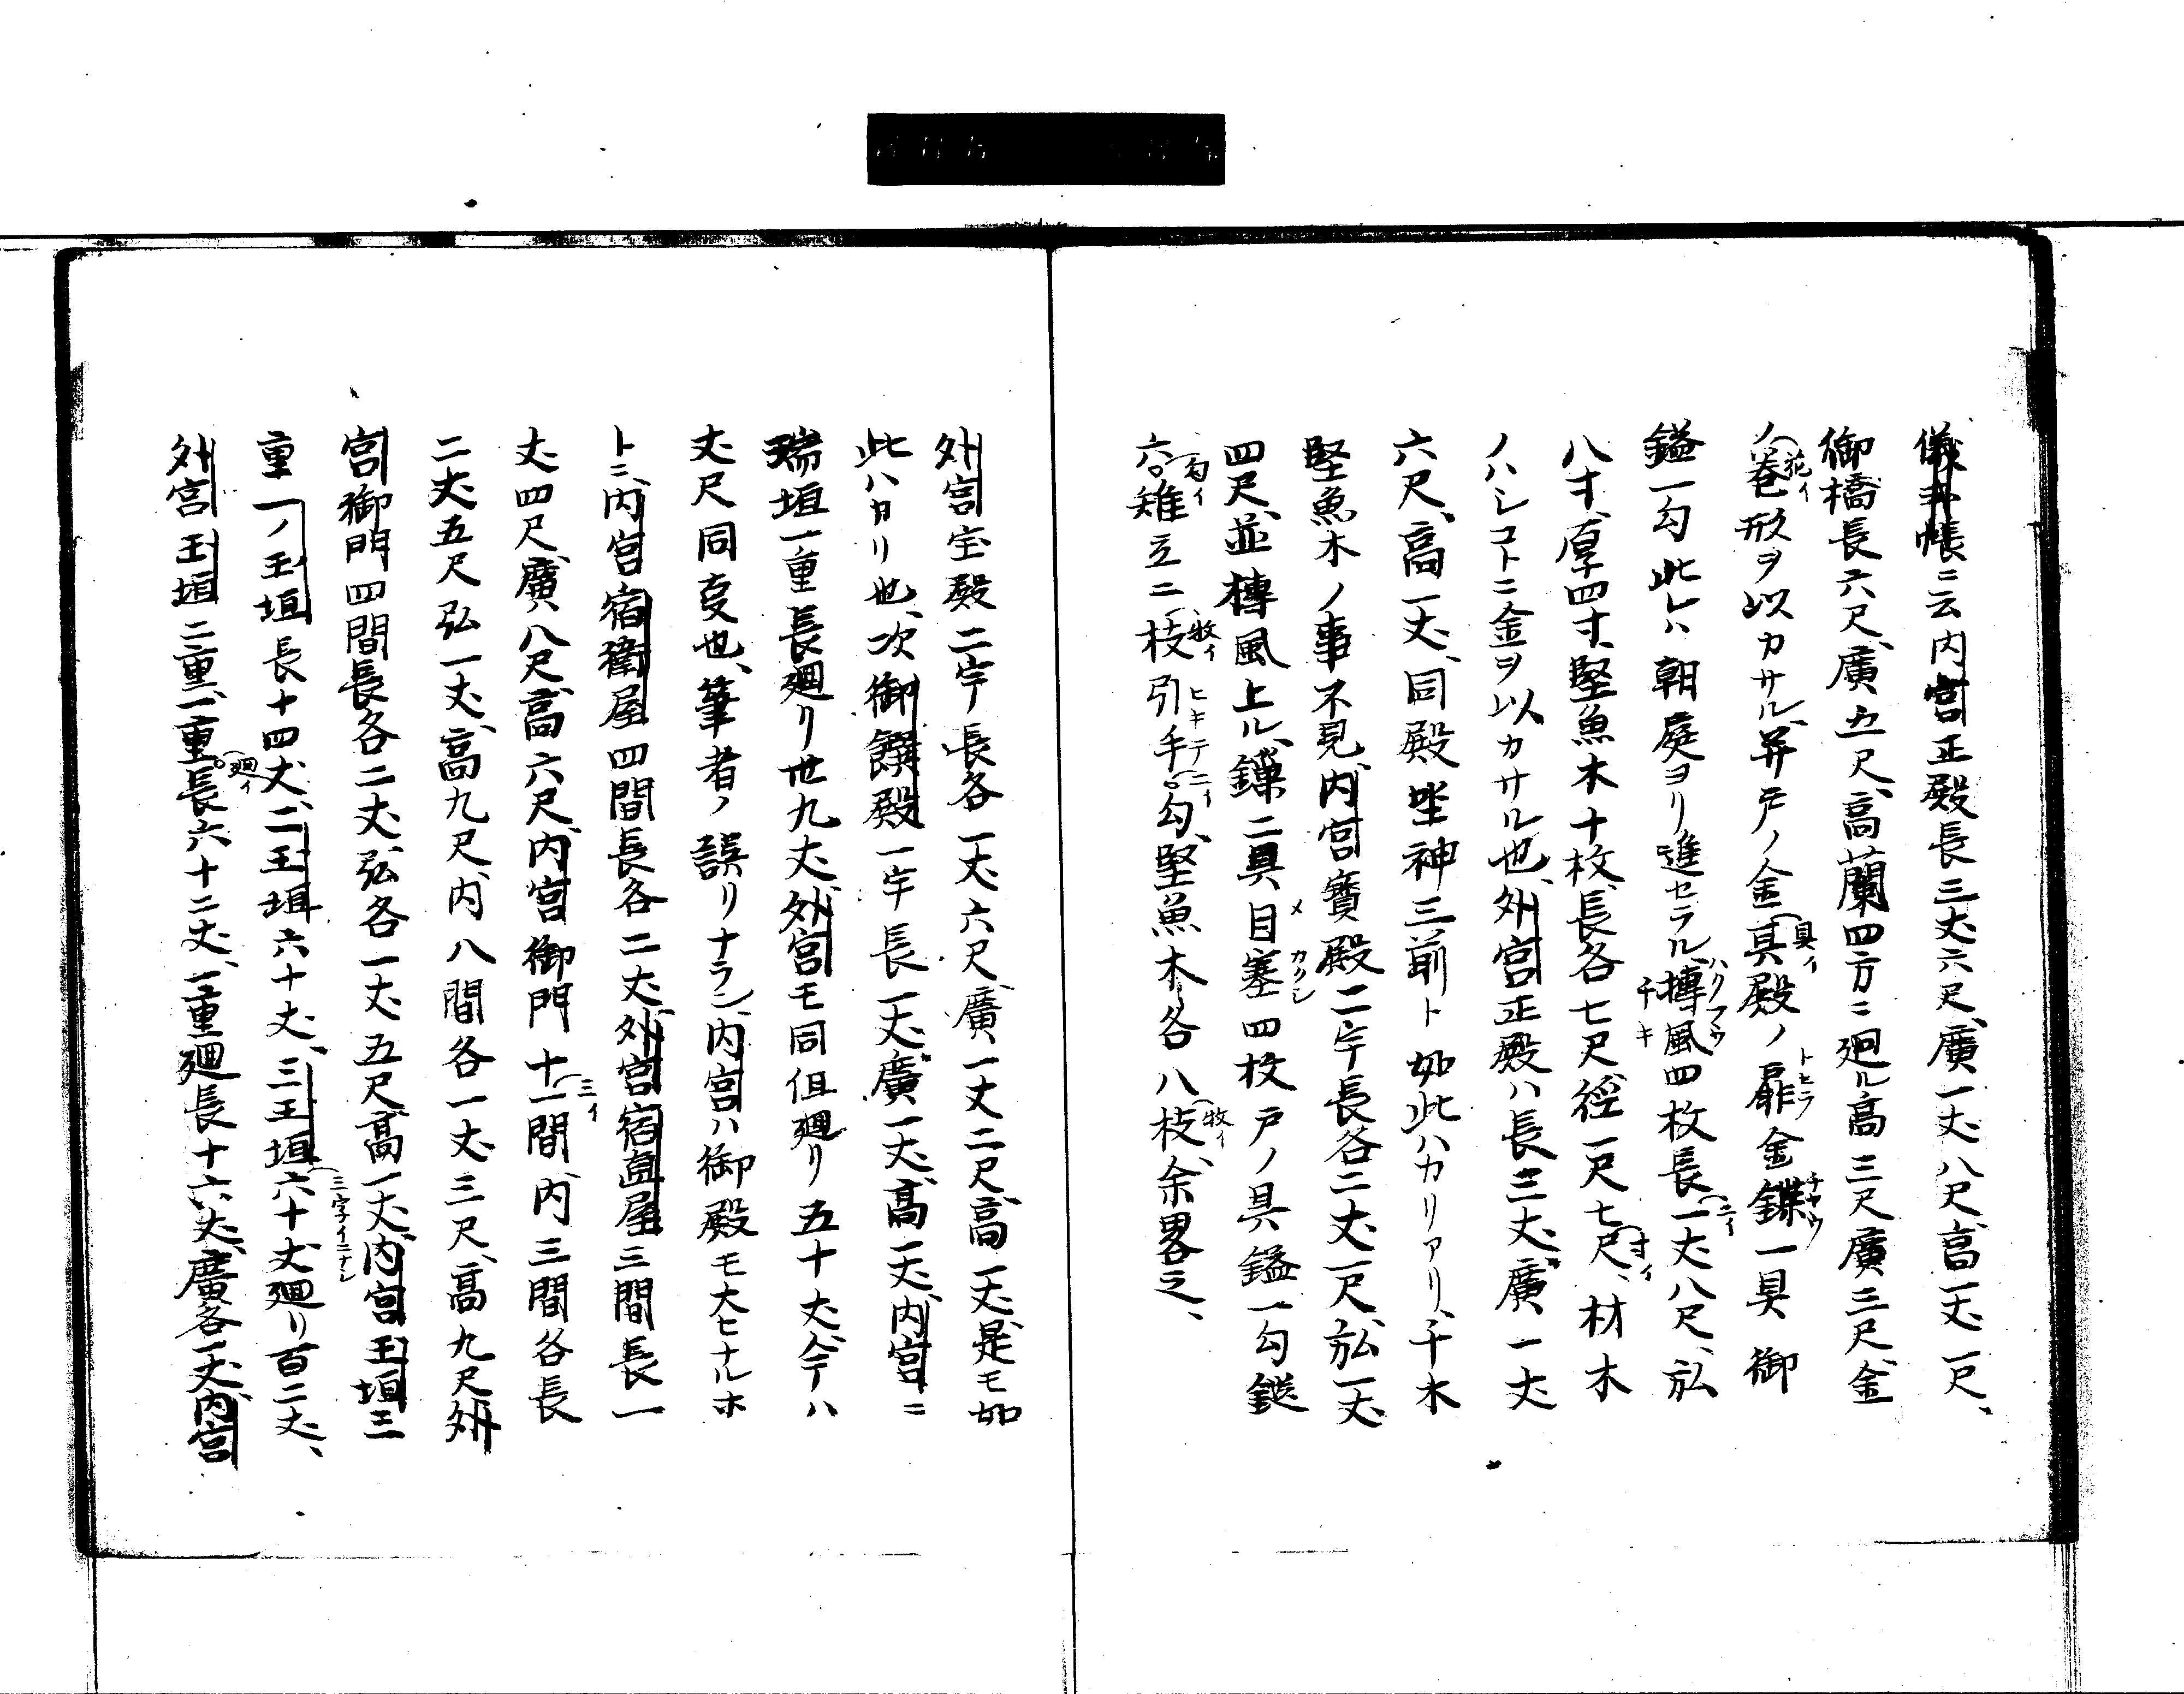 儀式帳ニ云内宮正殿長三丈六尺、廣一丈八尺、高一丈一尺、
御橋長六尺、廣五尺、高蘭四方ニ廻ル高三尺廣三尺、金
ノ巻(花イ)形ヲ以カサル、并戸ノ金具(具イ)殿ノ扉(トヒラ)金鏁(チヤウ)一具 御
鎰一勾此レハ朝庭ヨリ進セラル、摶風(ハクフウ チキ)四枚長一(二イ)丈八尺、弘
八寸、厚四寸、堅魚木十枚、長各七尺、徑一尺七尺(寸イ)、材木
ノハシコトニ金ヲ以カサル也、外宮正殿ハ長三丈、廣一丈
六尺、高一丈、同殿坐神三前ト如此ハカリアリ、千木
堅魚木ノ事不見、内宮寳殿二宇長各二丈一尺、弘一丈
四尺、並摶風上ル、鏁二具目塞(メカクシ)四枚戸ノ具鎰一勾鎹
六(勾イ)雉立二枝(牧イ)引手(ヒキテ)(二イ)勾、堅魚木各八枝(牧イ)、余畧之、
外宮宝殿二宇長各一丈六尺、廣一丈二尺、高一丈、是モ如
此ハカリ也、次御饌殿一宇長一丈、廣一丈、高一丈、内宮ニ
瑞垣一重長廻リ丗九丈、外宮モ同但廻リ五十丈、今ハ
丈尺同支也、筆者ノ誤リナラン、内宮ハ御殿モ大ヒナルホ
トニ、内宮宿衛屋四間長各二丈、外宮宿直屋三間長一
丈四尺、廣八尺、高六尺、内宮御門十一(三イ)間、内三間各長
二丈五尺弘一丈、高九尺、内八間各一丈三尺、高九尺外
宮御門四間長各二丈、弘各一丈五尺高一丈、内宮玉垣三
重一ノ玉垣長十四丈、二玉垣六十丈、三玉垣(三字イニナシ)六十丈廻リ百二丈、
外宮玉垣二重、一重(廻イ)長六十二丈、一重廻長十六丈、廣各一丈、内宮